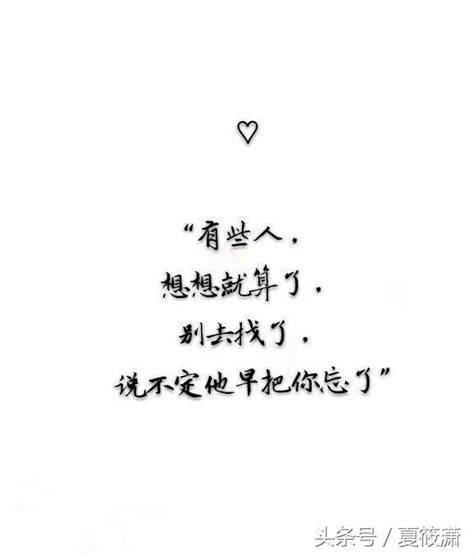 ♡
“有些人，
想想就算了，
别去找了，
说不定他早把你忘了”
头条号 / 夏筱潇